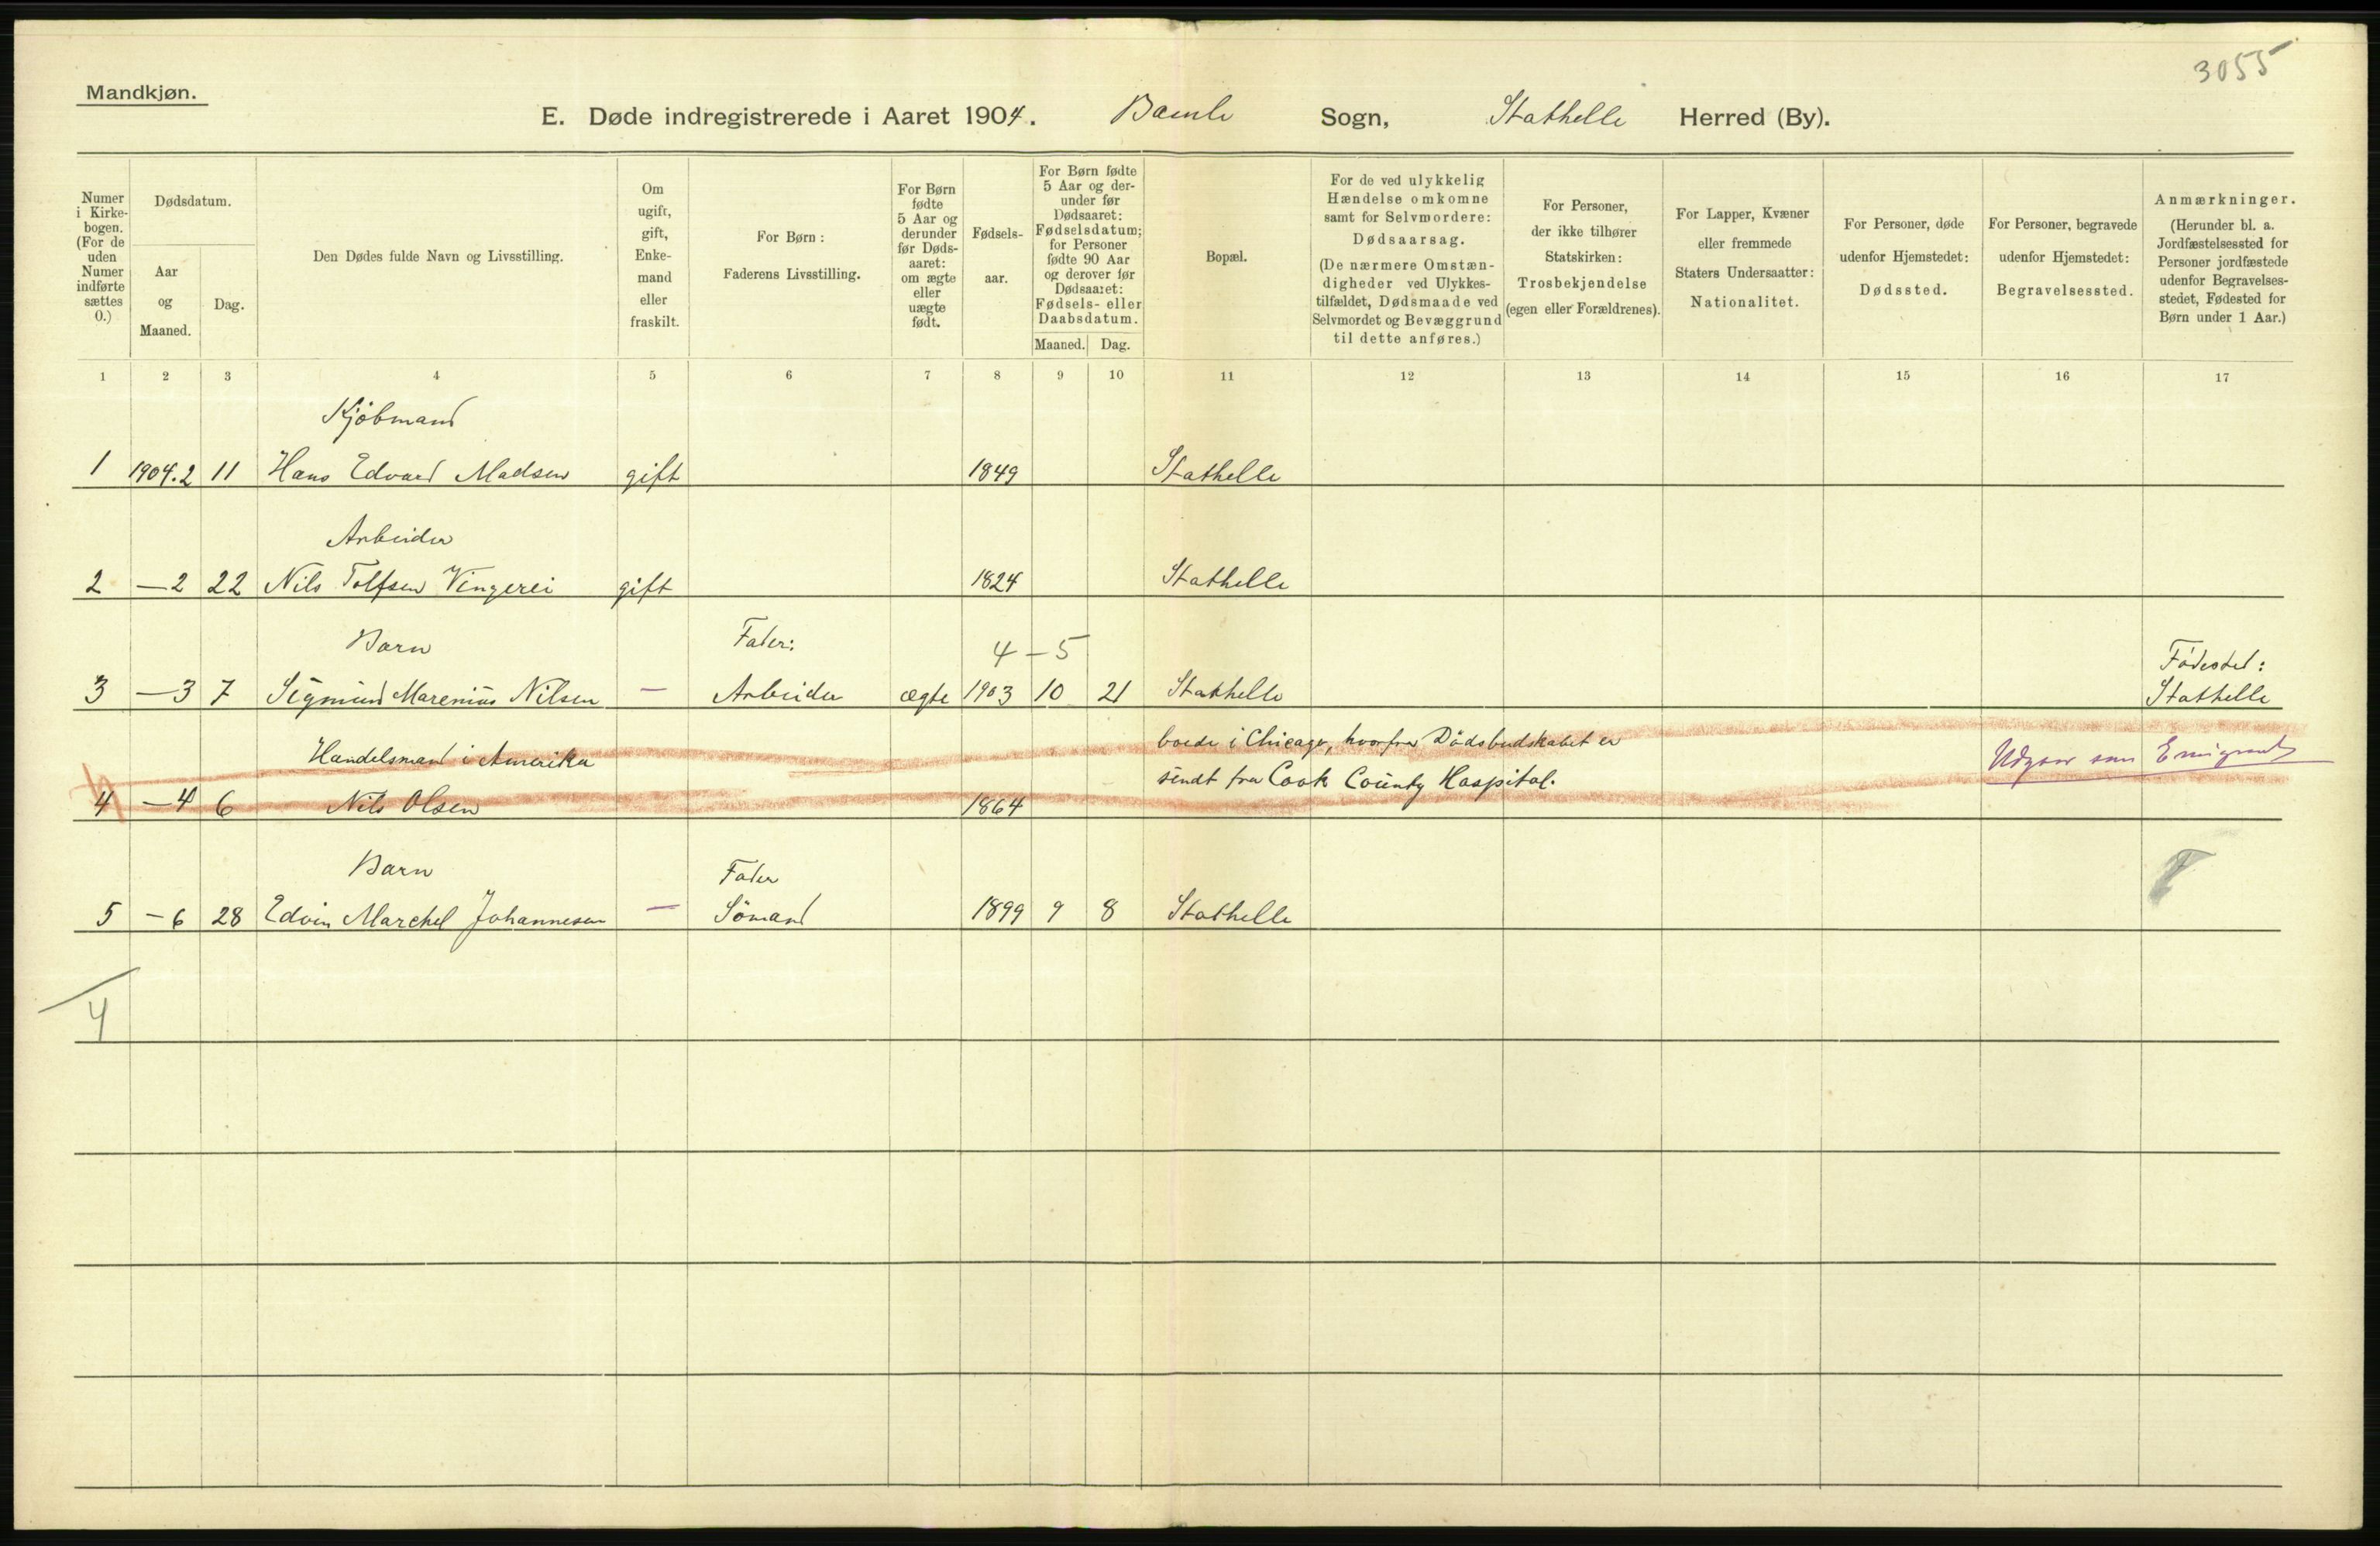 3055
Mandkjøn.
E. Døde indregistrerede i Aaret 1904. Bamle Sogn, Stathelle Herred (By).
Numer i Kirkebogen. (For de uden Numer indførte sættes 0.)
Dødsdatum.
Aar og Maaned.
Dag.
Den Dødes fulde Navn og Livsstilling.
Om ugift, gift, Enkemand eller fraskilt.
For Børn: Faderens Livsstilling.
For Børn fødte 5 Aar og derunder før Dødsaaret: om ægte eller uægte født.
Fødselsaar.
For Børn fødte 5 Aar og derunder før Dødsaaret: Fødselsdatum; for Personer fødte 90 Aar og derover før Dødsaaret: Fødsels- eller Daabsdatum.
Maaned. Dag.
Bopæl.
For de ved ulykkelig Hændelse omkomne samt for Selvmordere: Dødsaarsag. (De nærmere Omstændigheder ved Ulykkestilfældet, Dødsmaade ved Selvmordet og Bevæggrund til dette anføres.)
For Personer, der ikke tilhører Statskirken: Trosbekjendelse (egen eller Forældrenes).
For Lapper, Kvæner eller fremmede Staters Undersaatter: Nationalitet.
For Personer, døde udenfor Hjemstedet: Dødssted.
For Personer, begravede udenfor Hjemstedet: Begravelsessted.
Anmærkninger. (Herunder bl. a. Jordfæstelsessted for Personer jordfæstede udenfor Begravelsesstedet, Fødested for Børn under 1 Aar.)
1 2 3 4 5 6 7 8 9 10 11 12 13 14 15 16 17
Kjöbmand
1 1904.2 11 Hans Edvard Madsen gift 1849 Stathelle
Arbeider
2 — 2 22 Nils Tolfsen Vingerei gift 1824 Stathelle
Barn Fader: 4 – 5 Födested:
3 — 3 7 Sigmund Marenius Nilsen — Arbeider ægte 1903 10 21 Stathelle Stathelle
Handelsmand i Amerika boede i Chicago, hvorfra Dödsbudskabet er Udgaar som Emigrant
sendt fra Cook County Hospital.
4 — 4 6 Nils Olsen 1864
Barn Fader
5 — 6 28 Edvin Marchel Johannesen — Sömand 1899 9 8 Stathelle
4